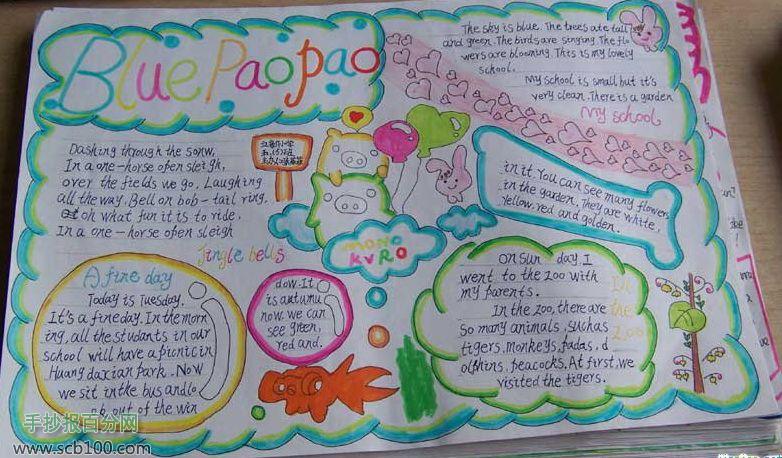 Blue Paopao
Dashing through the sonw,
In a one-horse ofen sleigh,
over the fields we go, Laughing
all the way. Bell on bob-tail ring,
oh what fun it is to ride,
In a one-horse ofen sleigh
Jingle bells
The sky is blue. The trees ate tall
and green. The birds are singing. The flo
wers are blooming. This is my lovely
school.
My school is small but it's
very clean. There is a garden
My school
in it. You can see many flowers
in the garden. They are white,
Yellow, red and golden.
MONO
KURO
A fine day
Today is Tuesday.
It's a fineday. In the morn
ing, all the studants in our
school will have a picnic in
Huang daxian park. Now
we sit in the bus and lo
k out of the win
dow. It
is autumu
now. we can
see green,
red and.
On sun day I
went to the zoo with
my parents.
In the zoo, there are
so many animals, suchas
tigers, monkeys, padas, d
olthins, peacocks. At first, we
visited the tigers.
In
the
Zoo
手抄报百分网
www.scb100.com